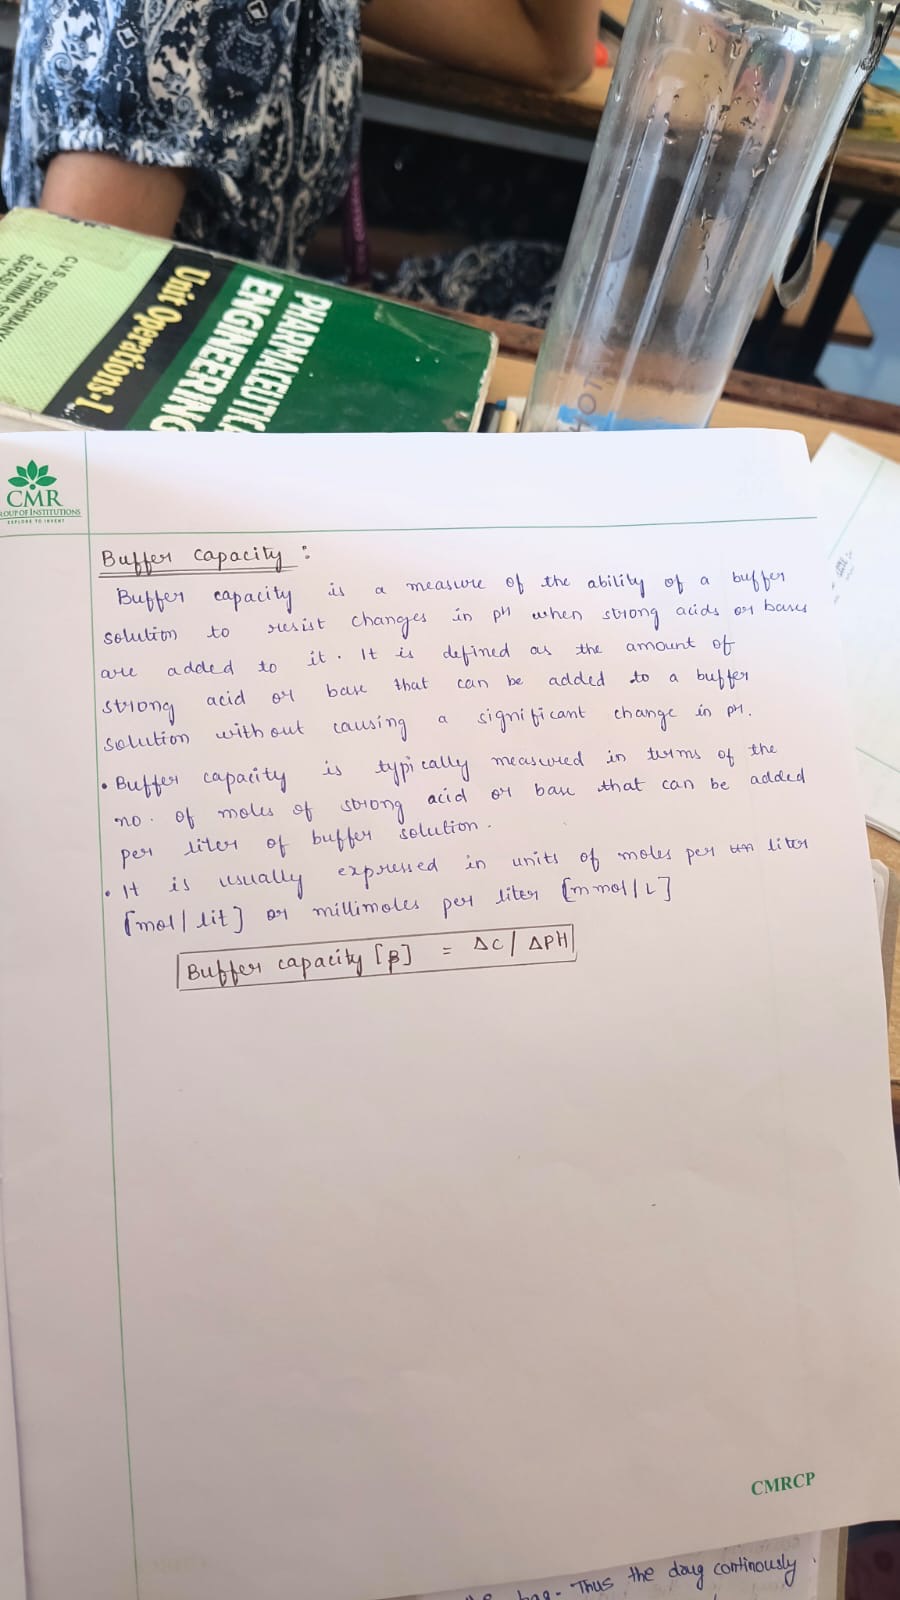 C.V.S. SUBRAHMANY
J. THIMMA
Unit Operations-I
ENGINEERING
PHARMACEUTICA
HOT
CMR
ROUP OF INSTITUTIONS
EXPLORE TO INVENT
Buffer capacity :
Buffer capacity is a measure of the ability of a buffer
solution to resist changes in pH when strong acids or bases
are added to it. It is defined as the amount of
strong acid or base that can be added to a buffer
solution without causing a significant change in pH.
• Buffer capacity is typically measured in terms of the
no. of moles of strong acid or base that can be added
per liter of buffer solution.
• It is usually expressed in units of moles per liter
[mol/lit] or millimoles per liter [mmol/L]
Buffer capacity [β] = ΔC/ΔPH
CMRCP
bag. Thus the drug continously